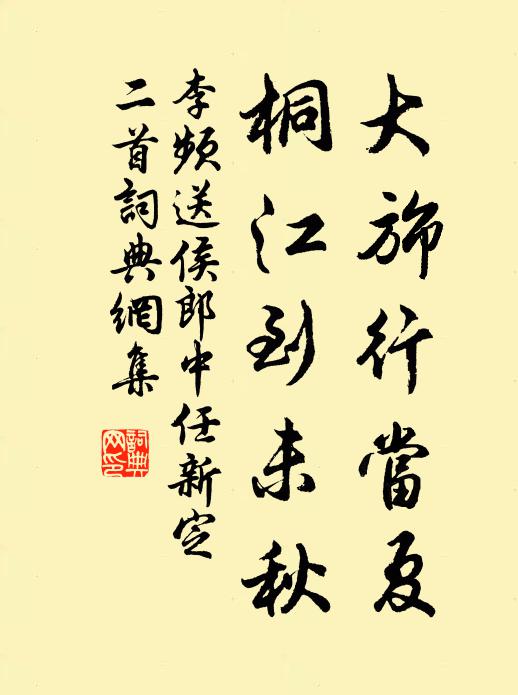 大旆行當夏
桐江到未秋
李頻送侯郎中任新定
二首詞典網集
詞典
网印